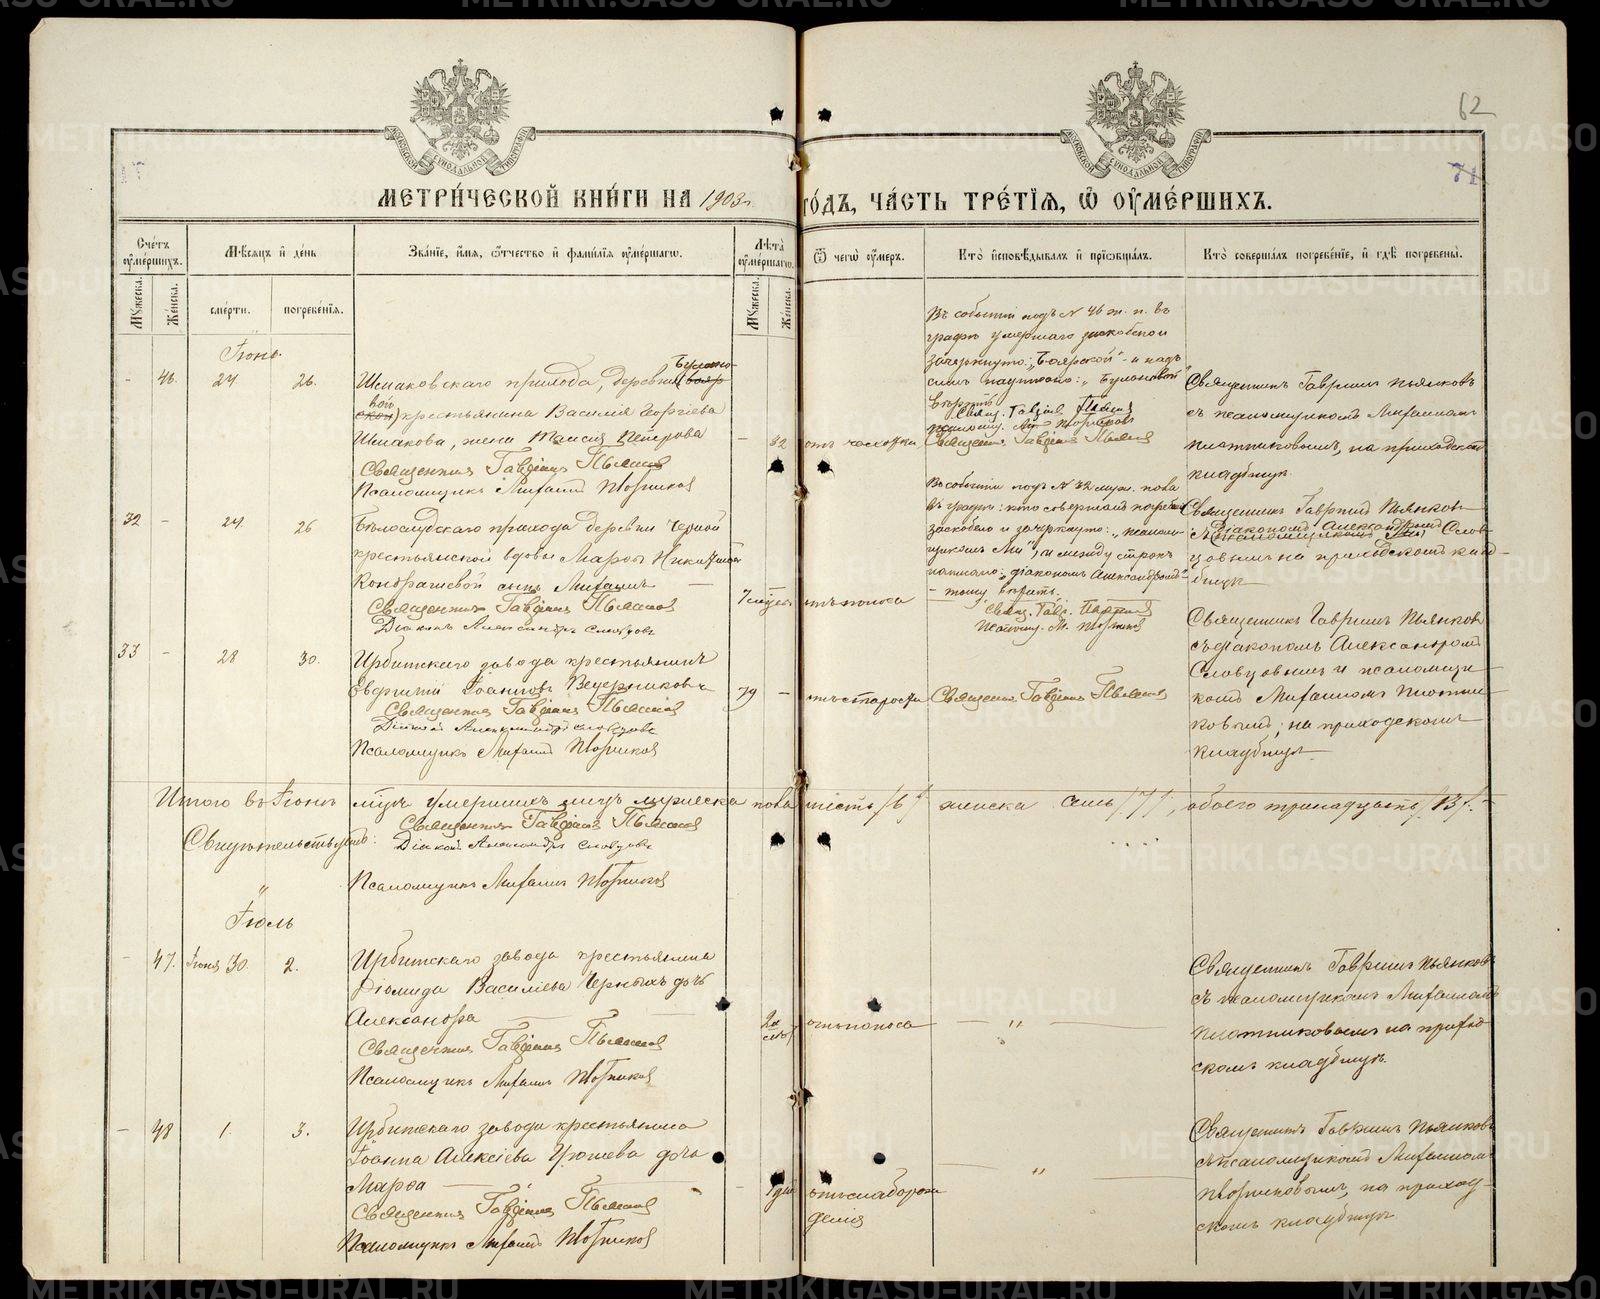 62
71
МЕТРИ́ЧЕСКОЙ КНИ́ГИ НА 1903 г. ГО́ДЪ, ЧА́СТЬ ТРЕ́ТІѦ, Ѡ҆ ОУ҆МЕ́РШИХЪ.
Сче́тъ оу҆ме́ршихъ.
Мѣ́сѧцъ и҆ де́нь
Зва́нїе, и҆́мѧ, ѻ҆́тчество и҆ фами́лїѧ оу҆ме́ршагѡ.
Лѣ́та оу҆ме́ршагѡ.
Ѿ чегѡ̀ оу҆́меръ.
Кто̀ и҆сповѣ́дывалъ и҆ прїѡбща́лъ.
Кто̀ соверша́лъ погребе́нїе, и҆ гдѣ̀ погребены̀.
Мꙋ́жеска.
Же́нска.
сме́рти.
погребе́нїѧ.
Мꙋ́жеска.
Же́нска.
Іюнь
- 46. 24 26.
Шмаковскаго прихода, деревни (Бояр
Булано-
ской) крестьянина Василія Георгіева
вой
Шмакова, жена Таисія Петрова
- 32
отъ чахотки
Священникъ Гавріилъ Пьянков
Псаломщикъ Михаилъ Плотников
Въ событіи подъ № 46 ж. п. въ
графѣ умершаго заскоблено и
зачеркнуто: „Боярской“ - и надъ
симъ написано: „Булановой“
вѣрить
Свящ. Гавріилъ Пьянков
псаломщ. М. Плотников
Священникъ Гавріилъ Пьянков
Священникъ Гавріилъ Пьянковъ
съ псаломщикомъ Михаиломъ
Плотниковымъ, на приходскомъ
кладбищѣ.
32 - 24. 26
Бѣлослудскаго прихода деревни Черной
крестьянской вдовы Марѳы Никитиной
Кондрашевой сынъ Михаилъ
Священникъ Гавріилъ Пьянков
Діаконъ Александръ Словцовъ
7 мѣсяц.
отъ поноса
Въ событіи подъ № 32 муж. пола
въ графѣ: кто совершалъ погребен.
заскоблено и зачеркнуто: „псалом-
щикомъ Ми“, и между строкъ
написано: „діакономъ Александромъ“
- тому вѣрить.
Свящ. Гавр. Пьянков
Псаломщ. М. Плотников
Священникъ Гавріилъ Пьянковъ
съ діакономъ Александромъ Слов-
псаломщикомъ Ми
цовымъ на приходскомъ клад-
бищѣ
33 - 28 30.
Ирбитскаго завода крестьянинъ
Евфимій Іоанновъ Вечерниковъ
Священникъ Гавріилъ Пьянков
Діаконъ Александръ Словцовъ
Псаломщикъ Михаилъ Плотников
79 -
отъ старости
Священникъ Гавріилъ Пьянков
Священникъ Гавріилъ Пьянковъ
съ діакономъ Александромъ
Словцовымъ и псаломщи-
комъ Михаиломъ Плотни-
ковымъ; на приходскомъ
кладбищѣ
Итого въ Іюнѣ мѣсяцѣ умершихъ лицъ мужеска пола шесть /6/ женска семь /7/, обоего тринадцать /13/. -
Свидѣтельствуютъ:
Священникъ Гавріилъ Пьянков
Діаконъ Александръ Словцовъ
Псаломщикъ Михаилъ Плотников
Іюль
- 47. Іюня 30. 2.
Ирбитскаго завода крестьянина
Діомида Васильева Черныхъ дочь
Александра
Священникъ Гавріилъ Пьянков
Псаломщикъ Михаилъ Плотников
отъ поноса
"
Священникъ Гавріилъ Пьянковъ
съ псаломщикомъ Михаиломъ
Плотниковымъ на приход-
скомъ кладбищѣ.
- 48 1. 3.
Ирбитскаго завода крестьянина
Іоанна Алексіева дочь
Марѳа
Священникъ Гавріилъ Пьянков
Псаломщикъ Михаилъ Плотников
- 1 дня
отъ слаборож-
денія
"
Священникъ Гавріилъ Пьянковъ
съ псаломщикомъ Михаиломъ
Плотниковымъ, на приход-
скомъ кладбищѣ
METRIKI.GASO-URAL.RU